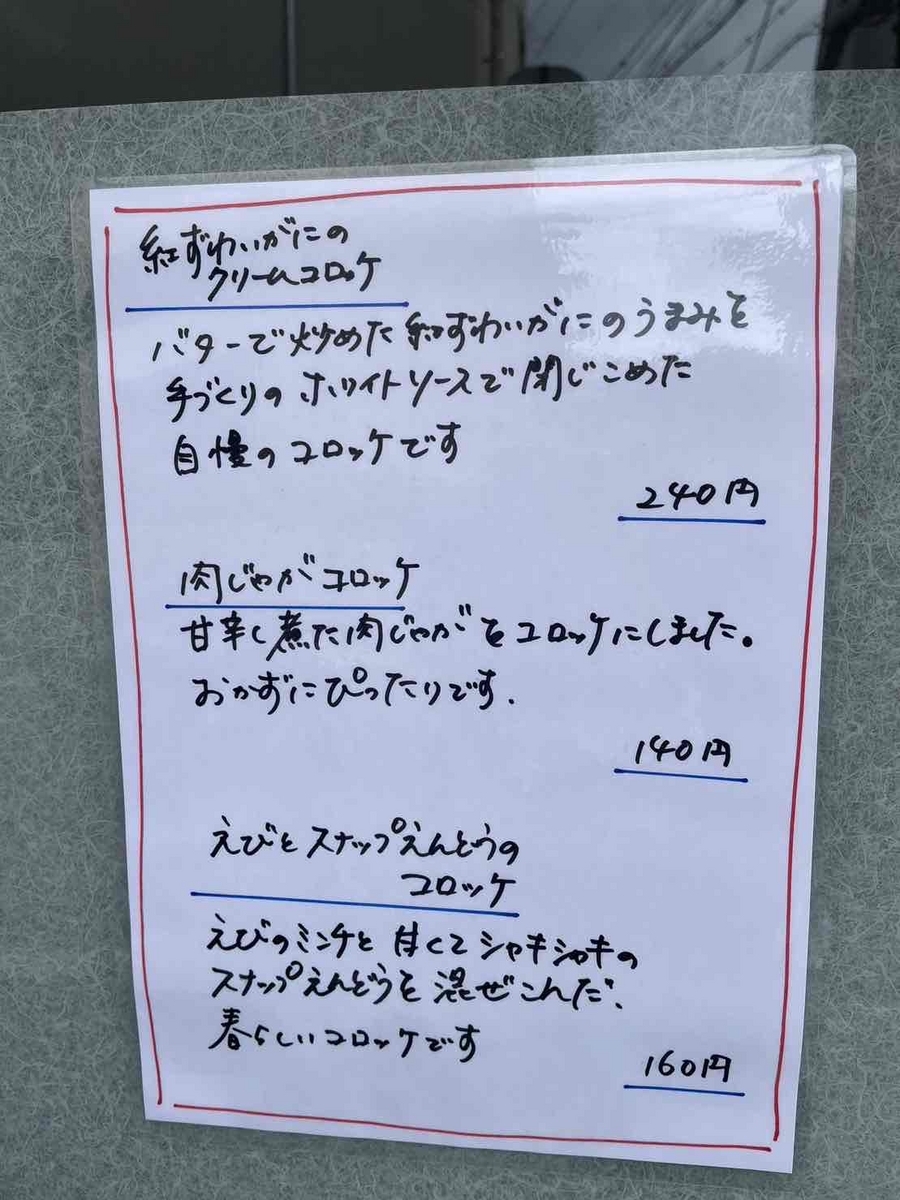 紅ずわいがにの
クリームコロッケ
バターで炒めた紅ずわいがにのうまみを
手づくりのホワイトソースで閉じこめた
自慢のコロッケです
240円
肉じゃがコロッケ
甘辛く煮た肉じゃがをコロッケにしました。
おかずにぴったりです.
140円
えびとスナップえんどうの
コロッケ
えびのミンチと甘くてシャキシャキの
スナップえんどうを混ぜこんだ、
春らしいコロッケです
160円